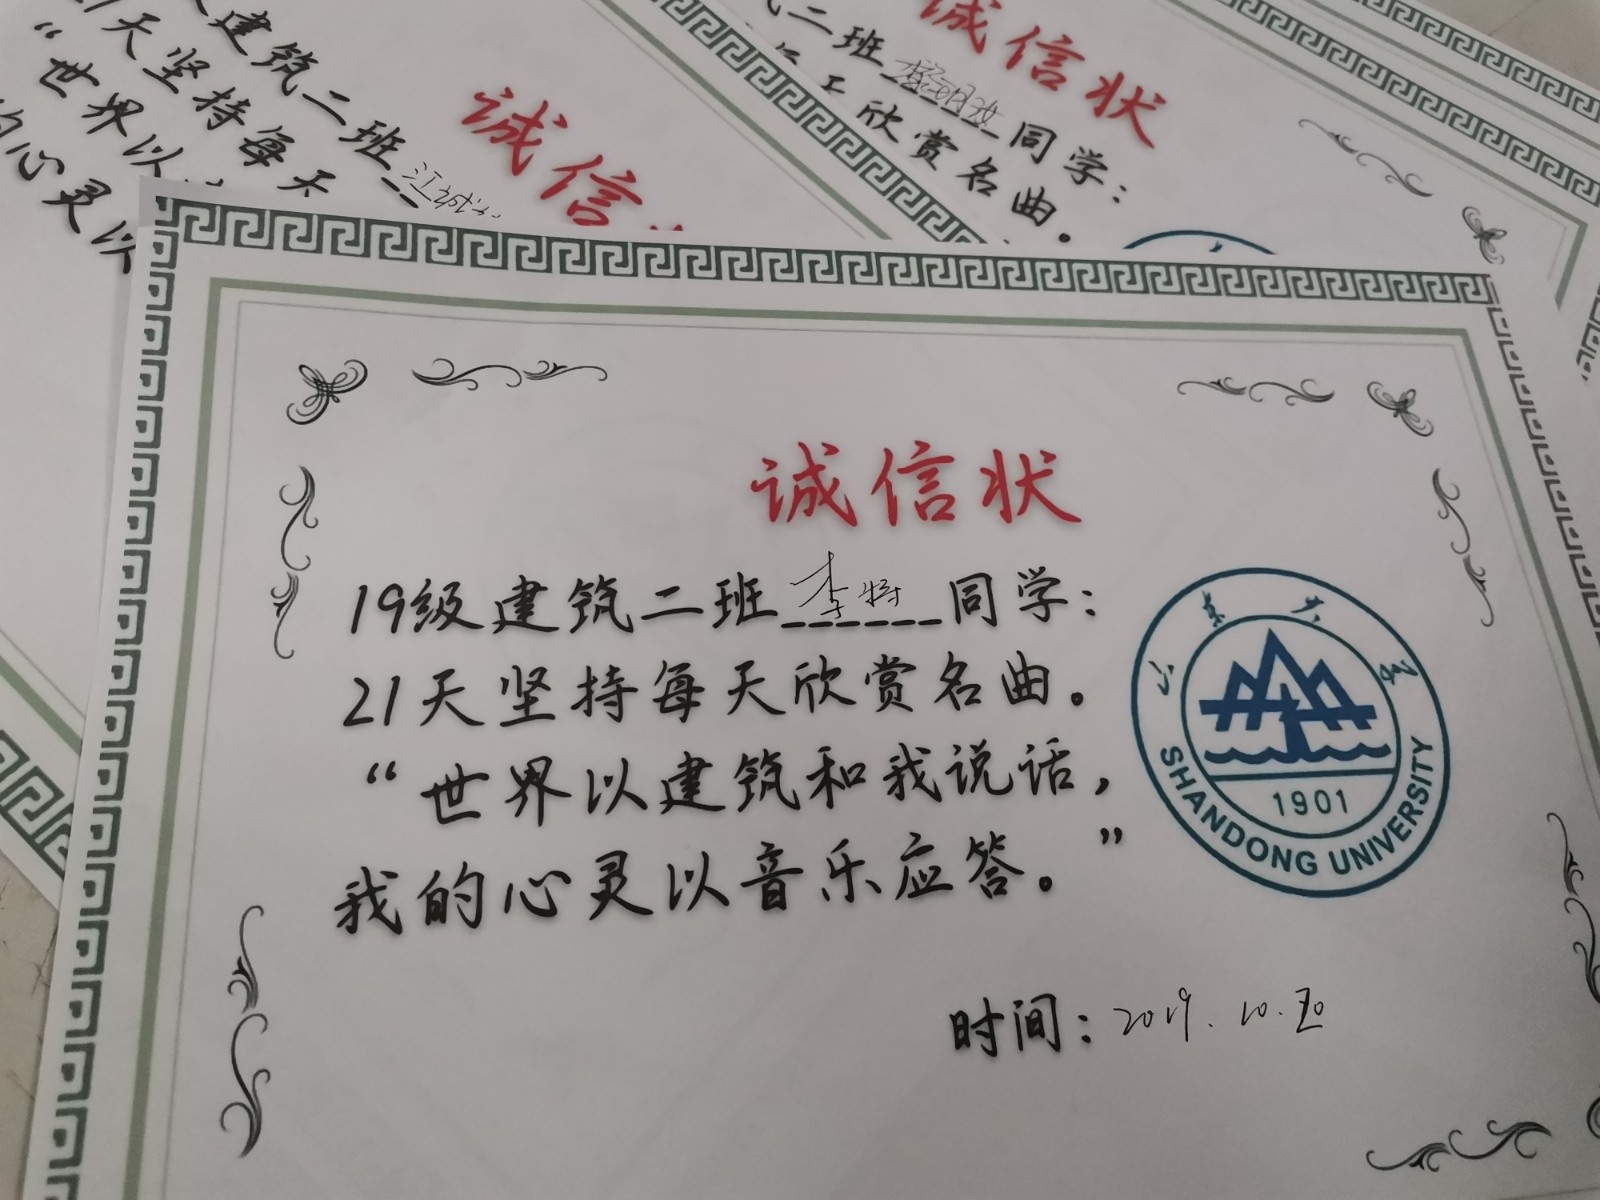 诚信状
19级建筑二班李特同学：
21天坚持每天欣赏名曲。
“世界以建筑和我说话，
我的心灵以音乐应答。”
时间：2019.10.20
山东大学
1901
SHANDONG UNIVERSITY
建筑二班
21天坚持每天
“世界以
的心灵以
诚信
二班
同学：
欣赏名曲。
诚信状